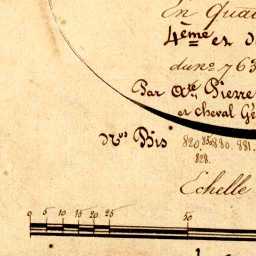 En Qua
4ème et d
du no. 763
Par Ate. Pierre
et cheval Gé
Nos Bis 820. 850 880. 881.
828.
Echelle
0 5 10 15 20 25 50